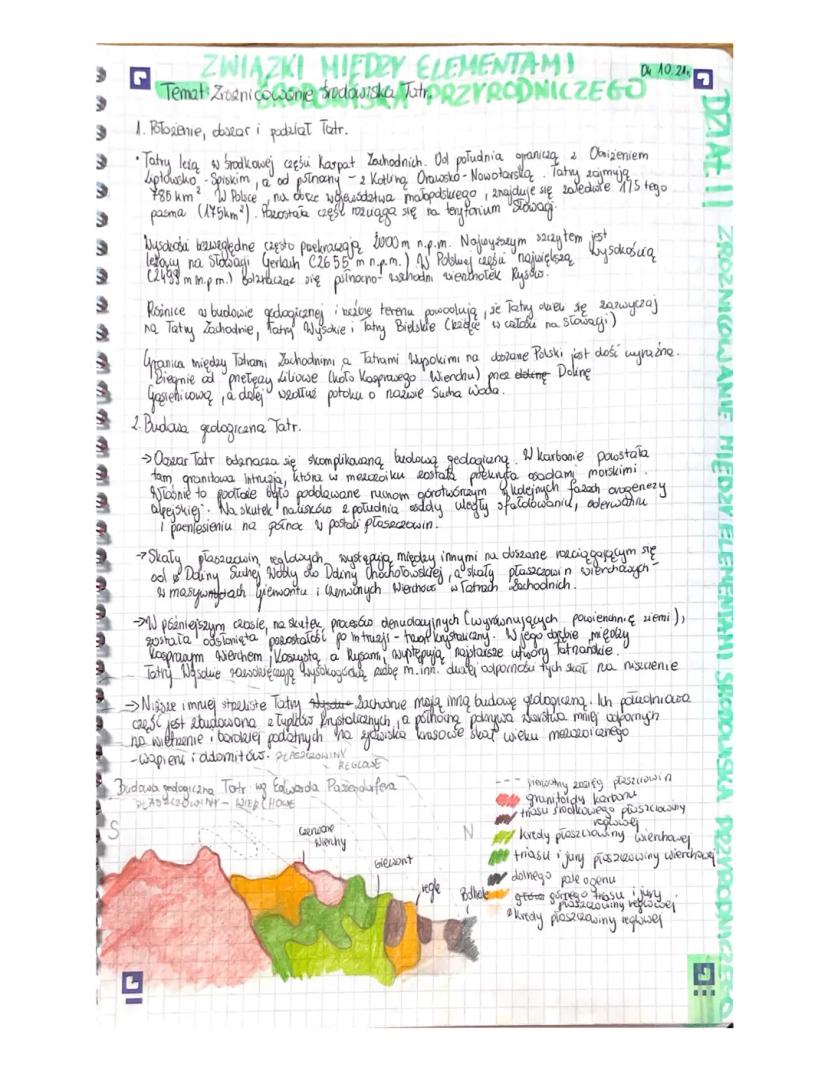 ZWIĄZKI MIĘDZY ELEMENTAMI
04.10.21r.
Temat: Zróżnicowanie środowiska Tatr.
ŚRODOWISKA PRZYRODNICZEGO
1. Położenie, obszar i podział Tatr.
• Tatry leżą w środkowej części Karpat Zachodnich. Od południa graniczą z Obniżeniem
Liptowsko-Spiskim, a od północny - z Kotliną Orawsko-Nowotarską. Tatry zajmują
785 km². W Polsce, na obszc województwa małopolskiego, znajduje się zaledwie 1/5 tego
pasma (175km²). Pozostała część rozciąga się na terytorium Słowacji.
Wysokości bezwzględne często przekraczają 2000 m n.p.m. Najwyższym szczytem jest
leżący na Słowacji Gerlach (2655 m n.p.m.) W Polskiej części największą wysokością
(2499 m n.p.m.) odznaczac się północno-wschodni wierzchołek Rysów.
Różnice w budowie geologicznej i rzeźbie terenu powodują, że Tatry dzieli się zazwyczaj
na Tatry Zachodnie, Tatry Wysokie i Tatry Bielskie (leżące w całości na Słowacji)
Granica między Tatrami Zachodnimi a Tatrami Wysokimi na obszarze Polski jest dość wyraźna.
Biegnie od przełęczy Liliowe (koło Kasprowego Wierchu) przez dolinę Dolinę
Gąsienicową, a dalej wzdłuż potoku o nazwie Sucha Woda.
2. Budowa geologiczna Tatr.
→ Obszar Tatr odznacza się skomplikowaną budową geologiczną. W karbonie powstała
tam granitowa intruzja, która w mezozoiku została przekryta osadami morskimi.
Właśnie to podłoże było poddawane ruchom górotwórczym w kolejnych fazach orogenezy
alpejskiej. Na skutek nacisków z południa osady uległy sfałdowaniu, oderwaniu
i przeniesieniu na północ w postaci płaszczowin.
→ Skały płaszczowin reglowych występują między innymi na obszarze rozciągającym się
od Doliny Suchej Wody do Doliny Chochołowskiej, a skały płaszczowin wierchowych -
w masywach Giewontu i Czerwonych Wierchów w Tatrach Zachodnich.
→ W późniejszym czasie, na skutek procesów denudacyjnych (wyrównujących powierzchnię ziemi),
została odsłonięta pozostałość po intruzji - trzon krystaliczny. W jego obrębie, między
Kasprowym Wierchem, Koszystą a Rysami, występują najstarsze utwory tatrzańskie.
Tatry Wysokie zawdzięczają wysokogórską rzeźbę m.in. dużej odporności tych skał na niszczenie
→ Niższe i mniej strzeliste Tatry Wysokie Zachodnie mają inną budowę geologiczną. Ich południowa
część jest zbudowana z łupków krystalicznych, a północną pokrywa warstwa mniej odpornych
na wietrzenie i bardziej podatnych na zjawiska krasowe skał wieku mezozoicznego
- wapieni i dolomitów.
PŁASZCZOWINY
- REGLOWE
Budowa geologiczna Tatr wg Edwarda Passendorfera
PŁASZCZOWINY - WIERCHOWE
S
Czerwone
Wierchy
Giewont
regle
N
Podhale
--- pierwotny zasięg płaszczowin
granitoidy karbonu
triasu środkowego płaszczowiny
reglowej
kredy płaszczowiny wierchowej
triasu i jury płaszczowiny wierchowej
dolnego paleogenu
górnego triasu i jury
płaszczowiny reglowej
kredy płaszczowiny reglowej
DZIAŁ II ZRÓŻNICOWANIE MIĘDZY ELEMENTAMI ŚRODOWISKA PRZYRODNICZEGO